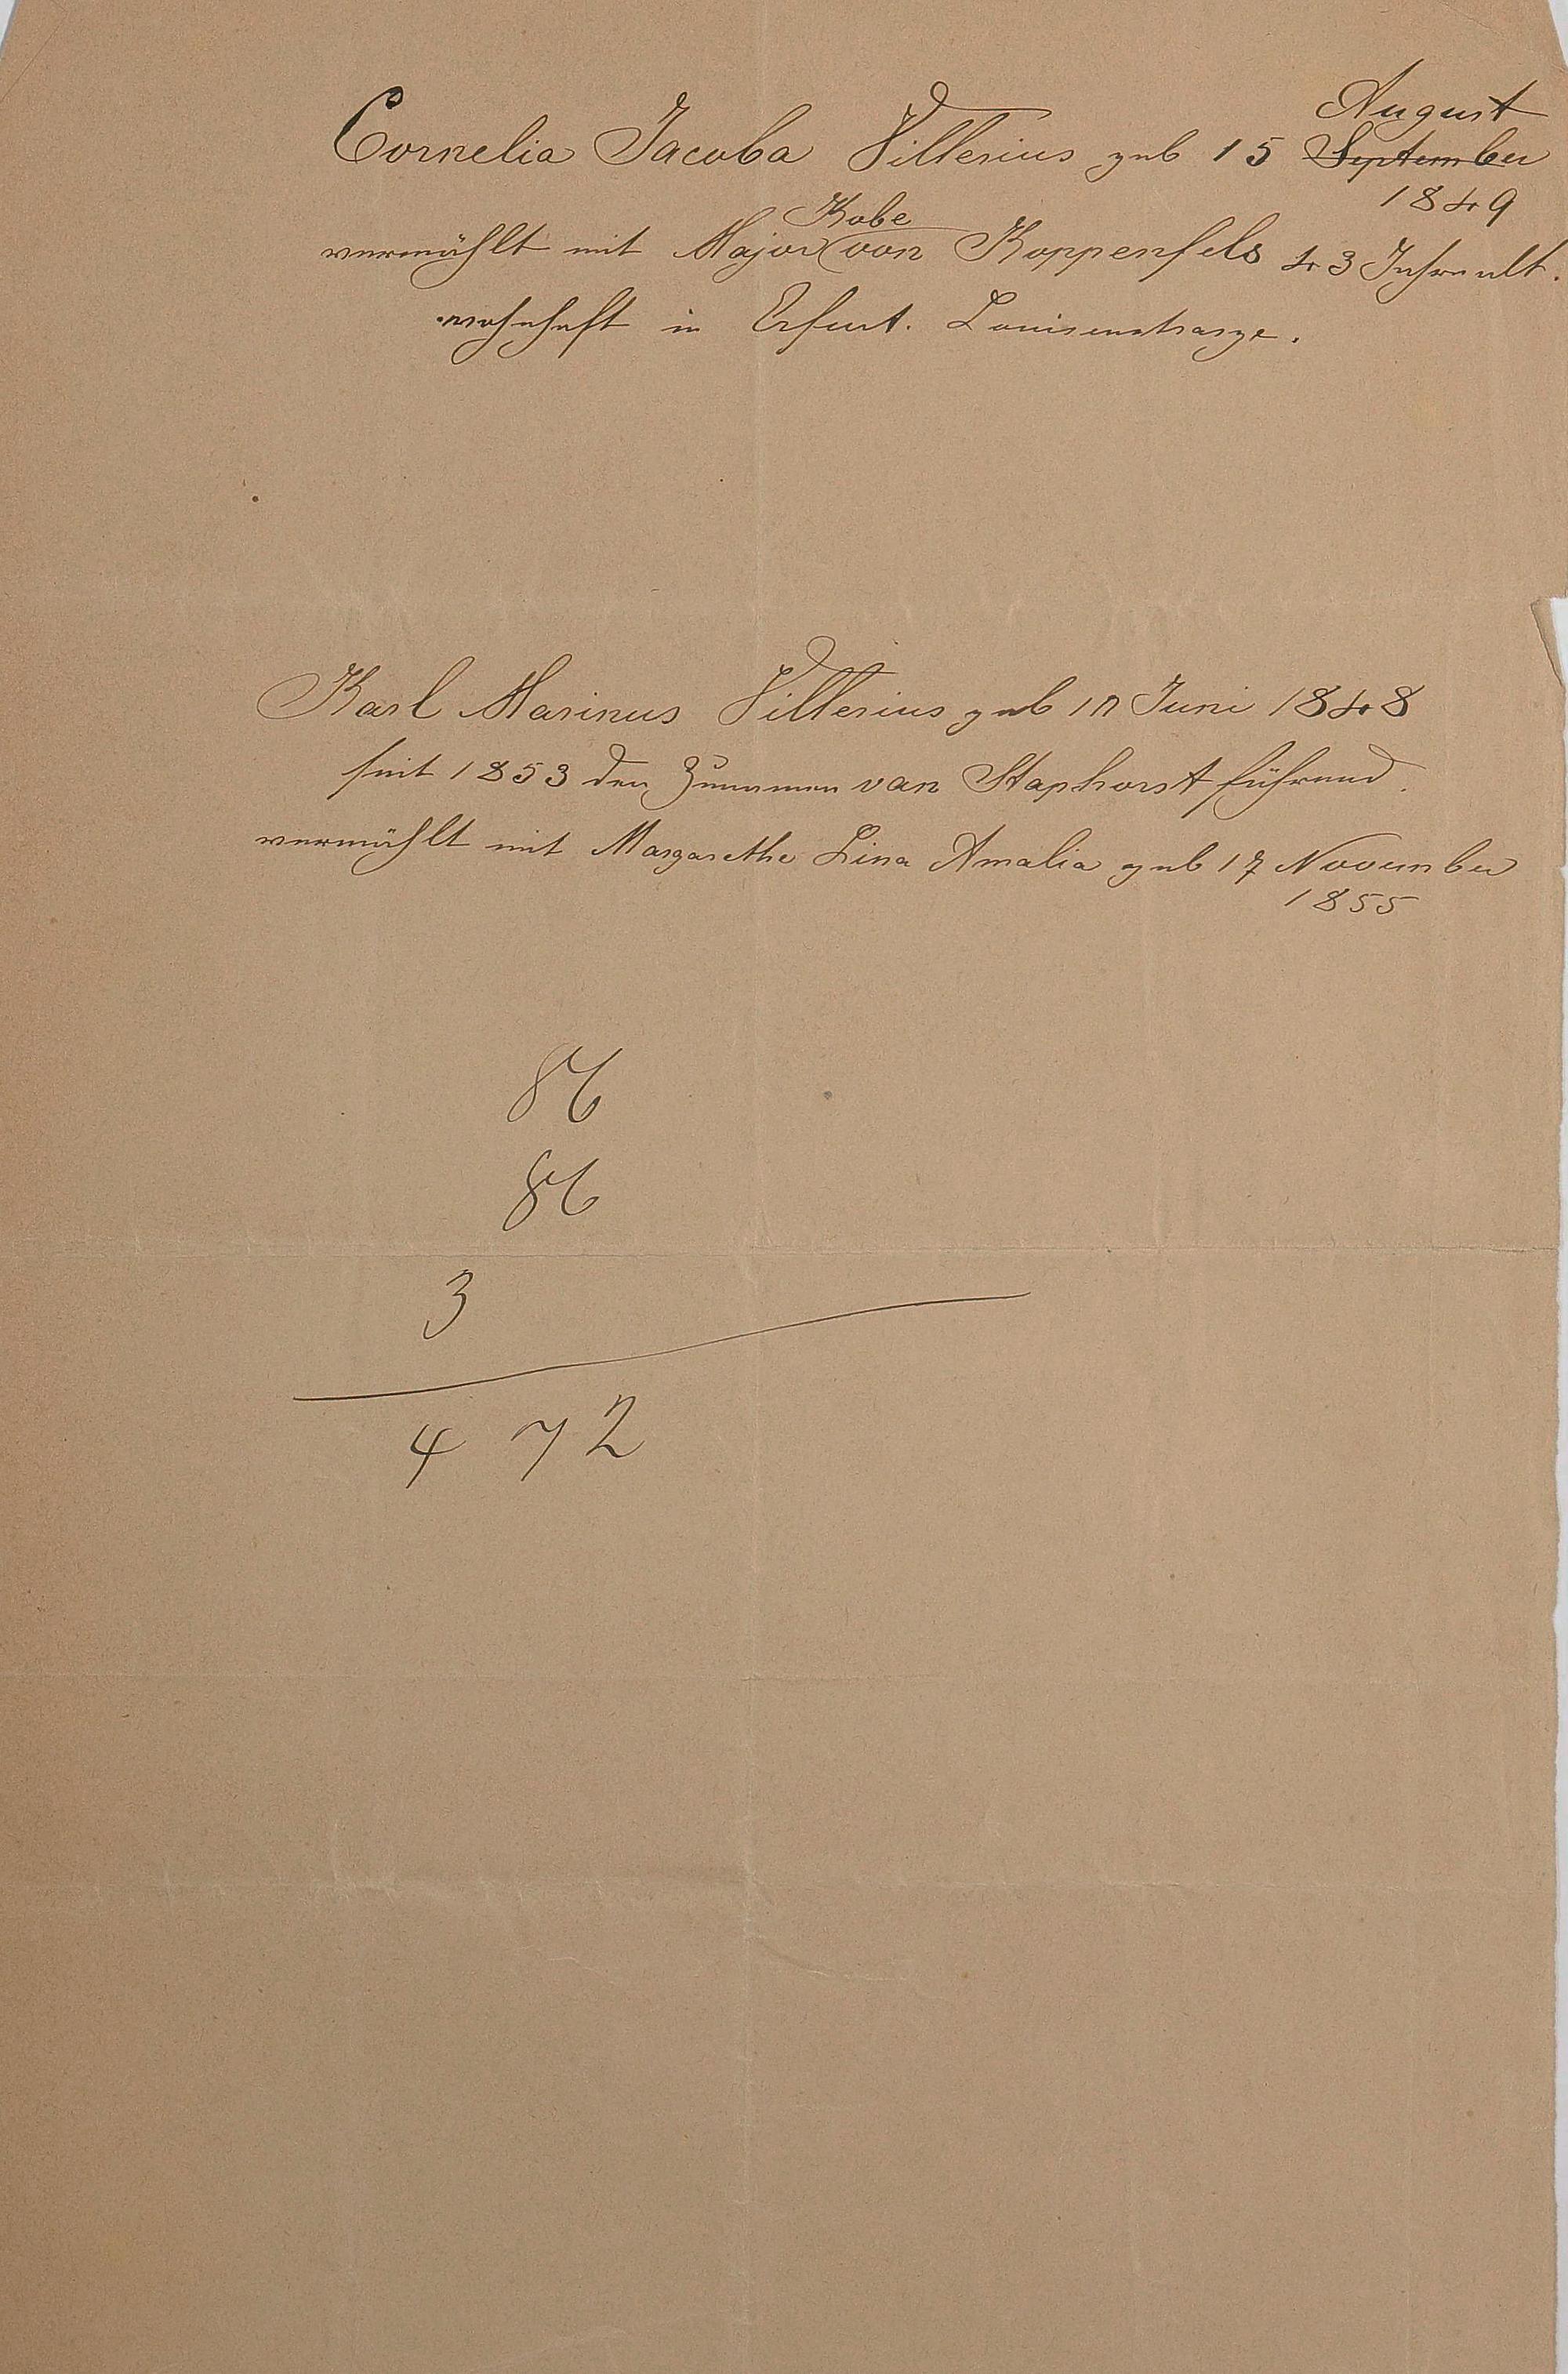 August
Cornelia Jacoba Villerius geb 15 September
1849
Kobe
vermählt mit Major von Koppenfels 43 Jahre alt.
wohnhaft in Erfurt. Louisenstrasze.
Karl Marinus Villerius geb 17 Juni 1848
seit 1853 den Zunamen van Staphorst führend.
vermählt mit Margarethe Lina Amalia geb 17 November
1855
86
86
3
4 72